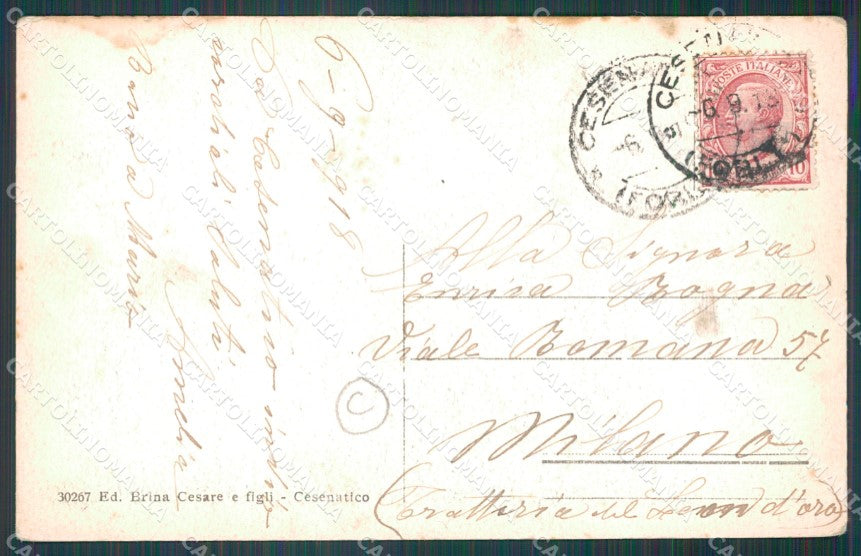 6-9-918
Da Cesenatico invio
cordiali saluti
Amelia
Baci a Maria
CESENATICO
(FORLI)
CESENATICO
6.9.18
(FORLI)
POSTE ITALIANE
10
Alla Signora
Enrica Bogna
Viale Romana 57
Milano
(Trattoria del Leon d'oro)
C
30267 Ed. Brina Cesare e figli - Cesenatico
CARTOLINOMANIA